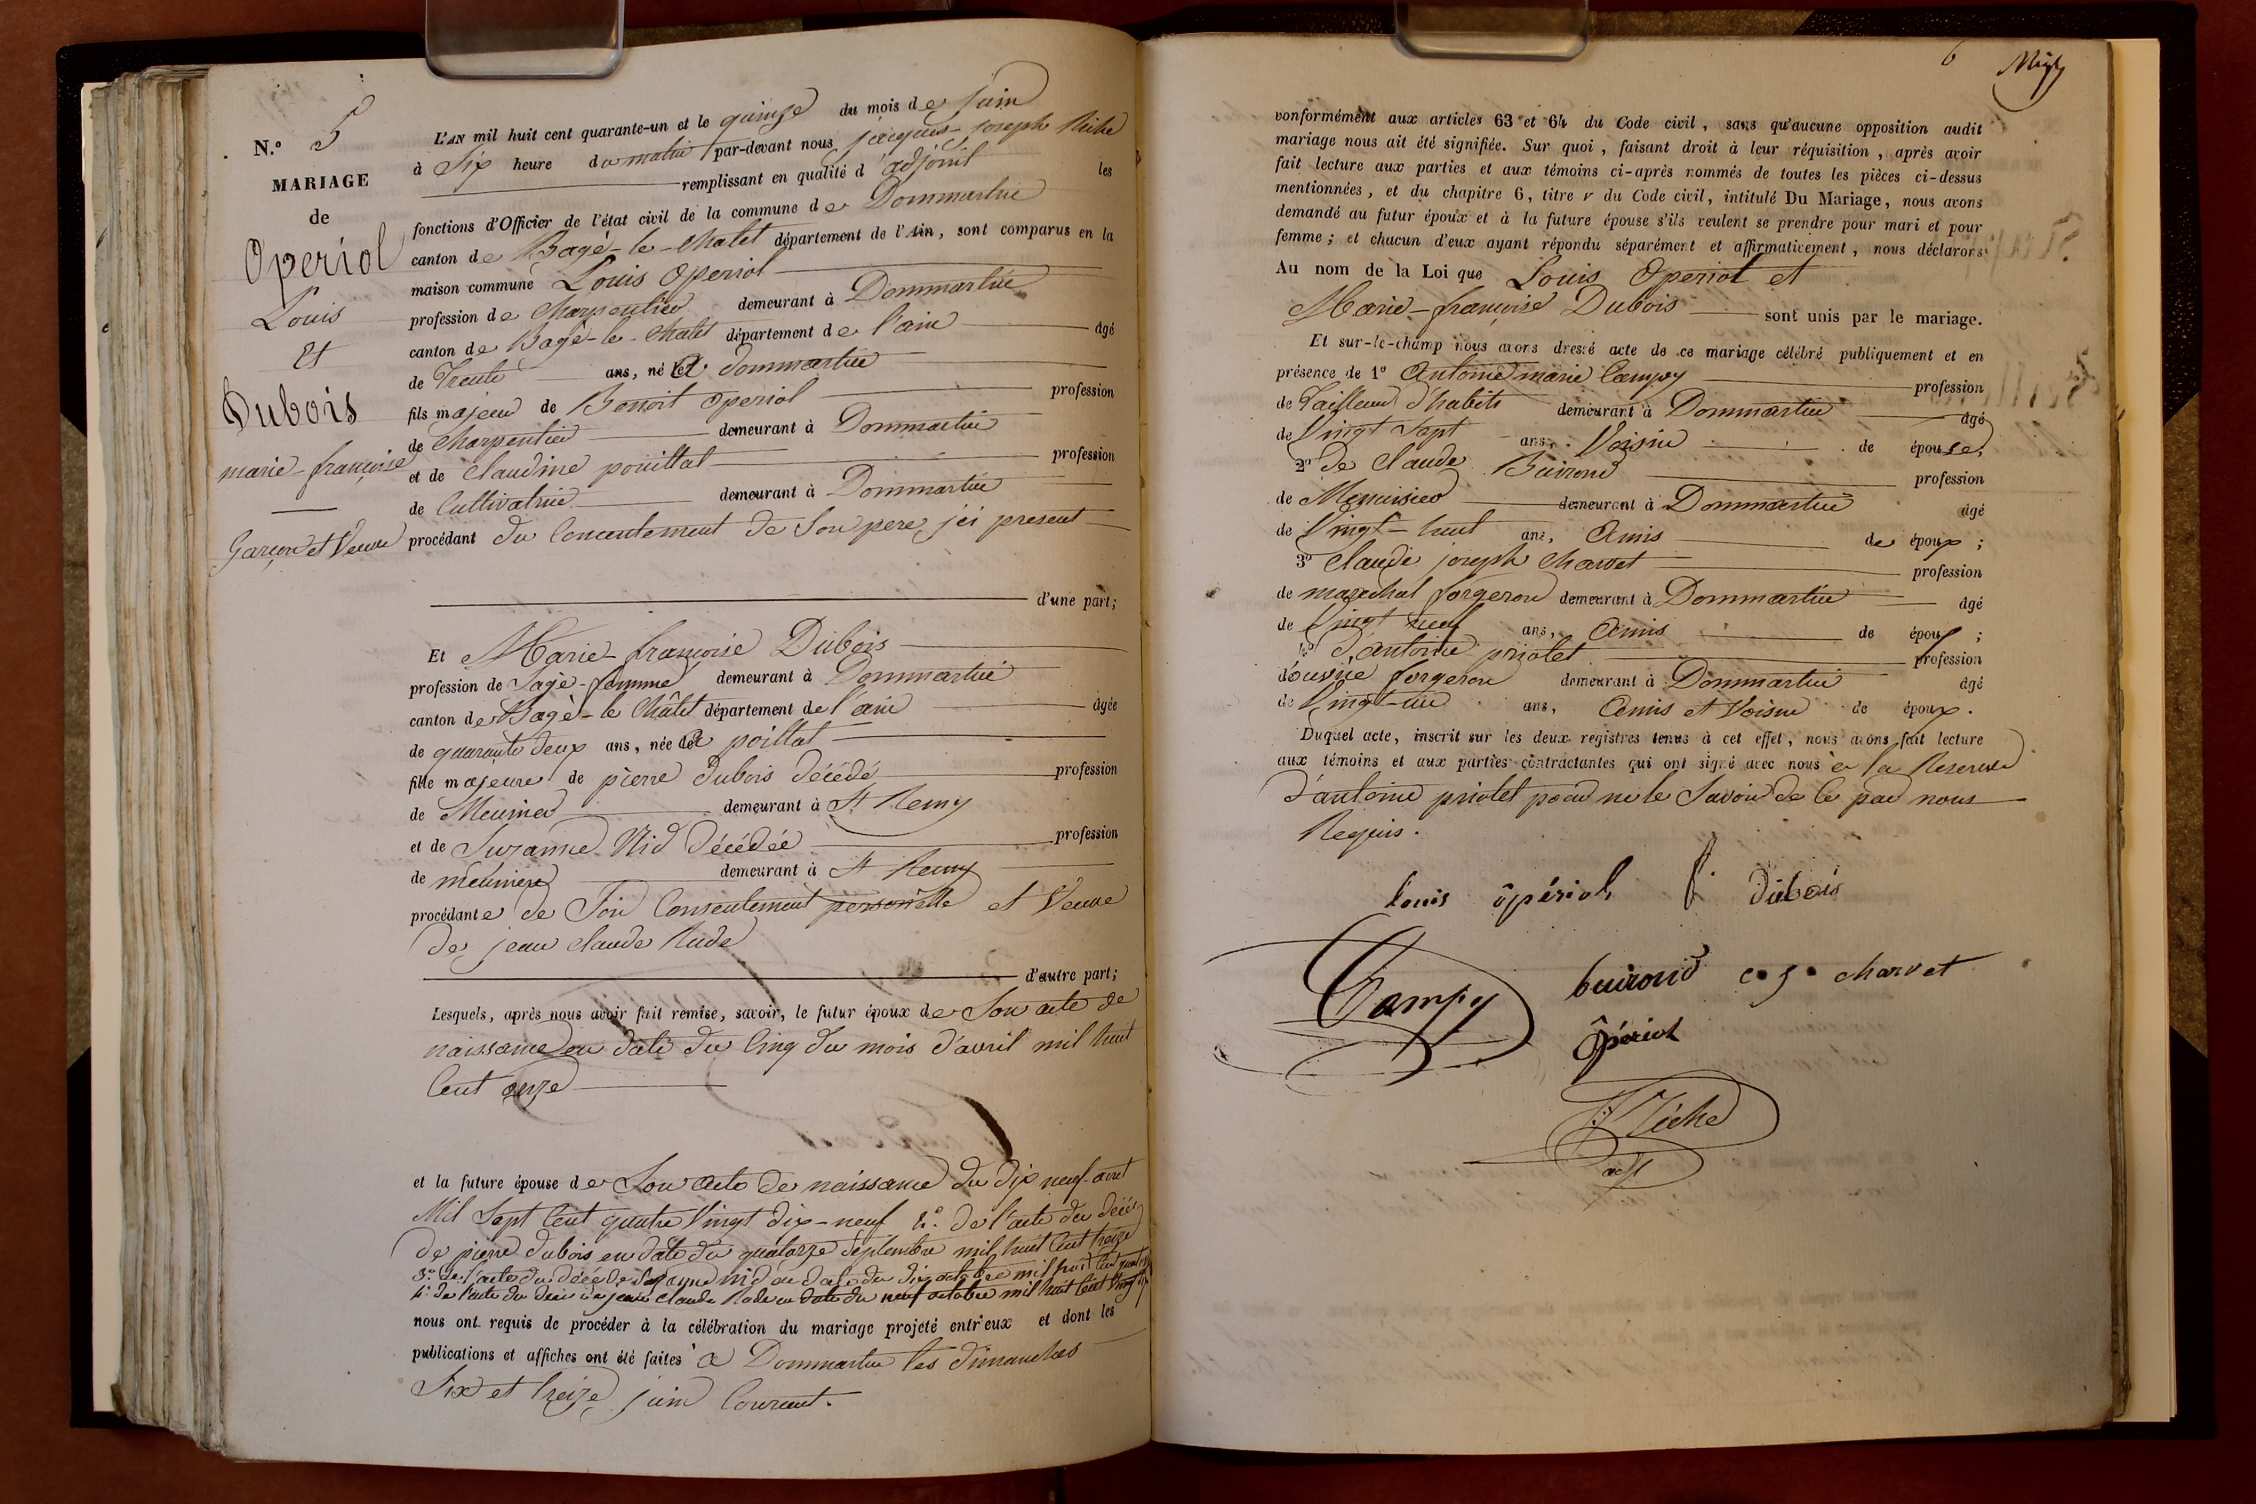 N.º 5
MARIAGE
de
Operiol
Louis
Et
Dubois
marie-françoise
Garçon et Veuve
L'AN mil huit cent quarante-un et le quinze du mois de juin
à Six heure du matin par-devant nous jacques-joseph Riche
remplissant en qualité d'adjoint les
fonctions d'Officier de l'état civil de la commune de Dommartin
canton de Bagé-le-Chatel département de l'Ain, sont comparus en la
maison commune Louis Operiol
profession de Charpentier demeurant à Dommartin
canton de Bagé-le-Chatel département de l'ain âgé
de Trente ans, né à dommartin
fils majeur de Benoit Operiol profession
de Charpentier demeurant à Dommartin
et de Claudine pouillat profession
de Cultivatrice demeurant à Dommartin
procédant du Concentement de Son pere jci present
d'une part;
Et Marie-françoise Dubois
profession de Sage-femme demeurant à Dommartin
canton de Bagé-le-Châtel département de l'ain âgée
de quarante deux ans, née à poillat
fille majeure de pierre dubois décédé profession
de Meunier demeurant à St Remy
et de Suzanne Nid décédée profession
de meunière demeurant à St Remy
procédante de Son Consentement personelle et Veuve
de jean claude Rude
d'autre part;
Lesquels, après nous avoir fait remise, savoir, le futur époux de Son acte de
naissance en date du Cinq du mois d'avril mil huit
Cent onze
et la future épouse de Son acte de naissance du dix neuf aout
Mil Sept Cent quatre Vingt dix-neuf 2.º de l'acte du décès
de pierre dubois en date du quatorze Septembre mil huit Cent treize
3.º de l'acte du décès de Suzanne nid en date du dix octobre mil huit Cent
4.º de l'acte du décès de jean Claude Rude en date du neuf octobre mil huit Cent Vingt
nous ont requis de procéder à la célébration du mariage projeté entr'eux et dont les
publications et affiches ont été faites à Dommartin les dimanches
Six et treize juin Courant.
6
conformément aux articles 63 et 64 du Code civil, sans qu'aucune opposition audit
mariage nous ait été signifiée. Sur quoi, faisant droit à leur réquisition, après avoir
fait lecture aux parties et aux témoins ci-après nommés de toutes les pièces ci-dessus
mentionnées, et du chapitre 6, titre v du Code civil, intitulé Du Mariage, nous avons
demandé au futur époux et à la future épouse s'ils veulent se prendre pour mari et pour
femme; et chacun d'eux ayant répondu séparément et affirmativement, nous déclarons
Au nom de la Loi que Louis Operiol et
Marie-françoise Dubois sont unis par le mariage.
Et sur-le-champ nous avons dressé acte de ce mariage célébré publiquement et en
présence de 1º Antoine marie Campy profession
de Tailleur d'habits demeurant à Dommartin âgé
de Vingt Sept ans, Voisin de épouse;
2º de Claude Buiron profession
de Menuisier demeurant à Dommartin âgé
de Vingt-huit ans, Amis de époux;
3º Claude joseph Charvet profession
de marechal forgeron demeurant à Dommartin âgé
de Vingt neuf ans, Amis de époux;
4º d'antoine priolet profession
d'ouvrié forgeron demeurant à Dommartin âgé
de Vingt-un ans, Amis et Voisin de époux.
Duquel acte, inscrit sur les deux registres tenus à cet effet, nous avons fait lecture
aux témoins et aux parties contractantes qui ont signé avec nous a la Reserve
d'antoine priolet pour ne le Savoir de Ce par nous
Requis.
Louis ôpériol f. dubois
Campy buirond c. j. charvet
ôpériol
Riche
adjt